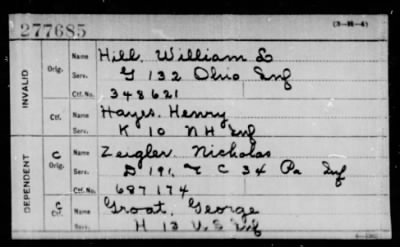 277685 (3-M-4)
INVALID
Orig. Name Hill, William S
Serv. G 132 Ohio Inf
Ctf. No. 348621
Ctf. Name Hayes, Henry
Serv. K 10 NH Inf
DEPENDENT
C Orig. Name Zeigler, Nicholas
Serv. D 191 & C 34 Pa Inf
Ctf. No. 687174
C Ctf. Name Groat, George
Serv. H 13 U.S Inf